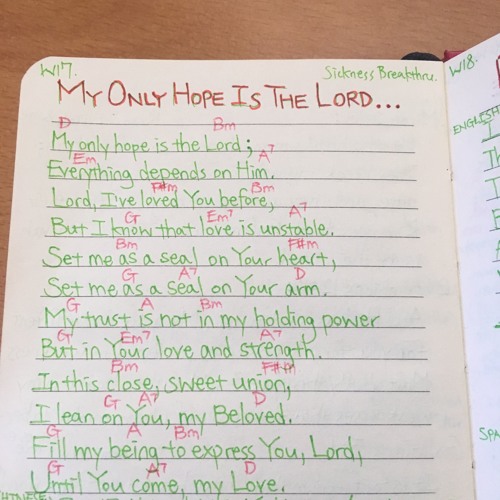 W17.
Sickness Breakthru.
MY ONLY HOPE IS THE LORD...
D Bm
My only hope is the Lord;
Em A7
Everything depends on Him.
F#m Bm
Lord, I've loved You before,
G Em7 A7
But I know that love is unstable.
Bm F#m
Set me as a seal on Your heart,
G A7 D
Set me as a seal on Your arm.
G A Bm
My trust is not in my holding power
G Em7 A7
But in Your love and strength.
Bm F#m
In this close, sweet union,
G A7 D
I lean on You, my Beloved.
G A Bm
Fill my being to express You, Lord,
G A7 D
Until You come, my Love.
W18.